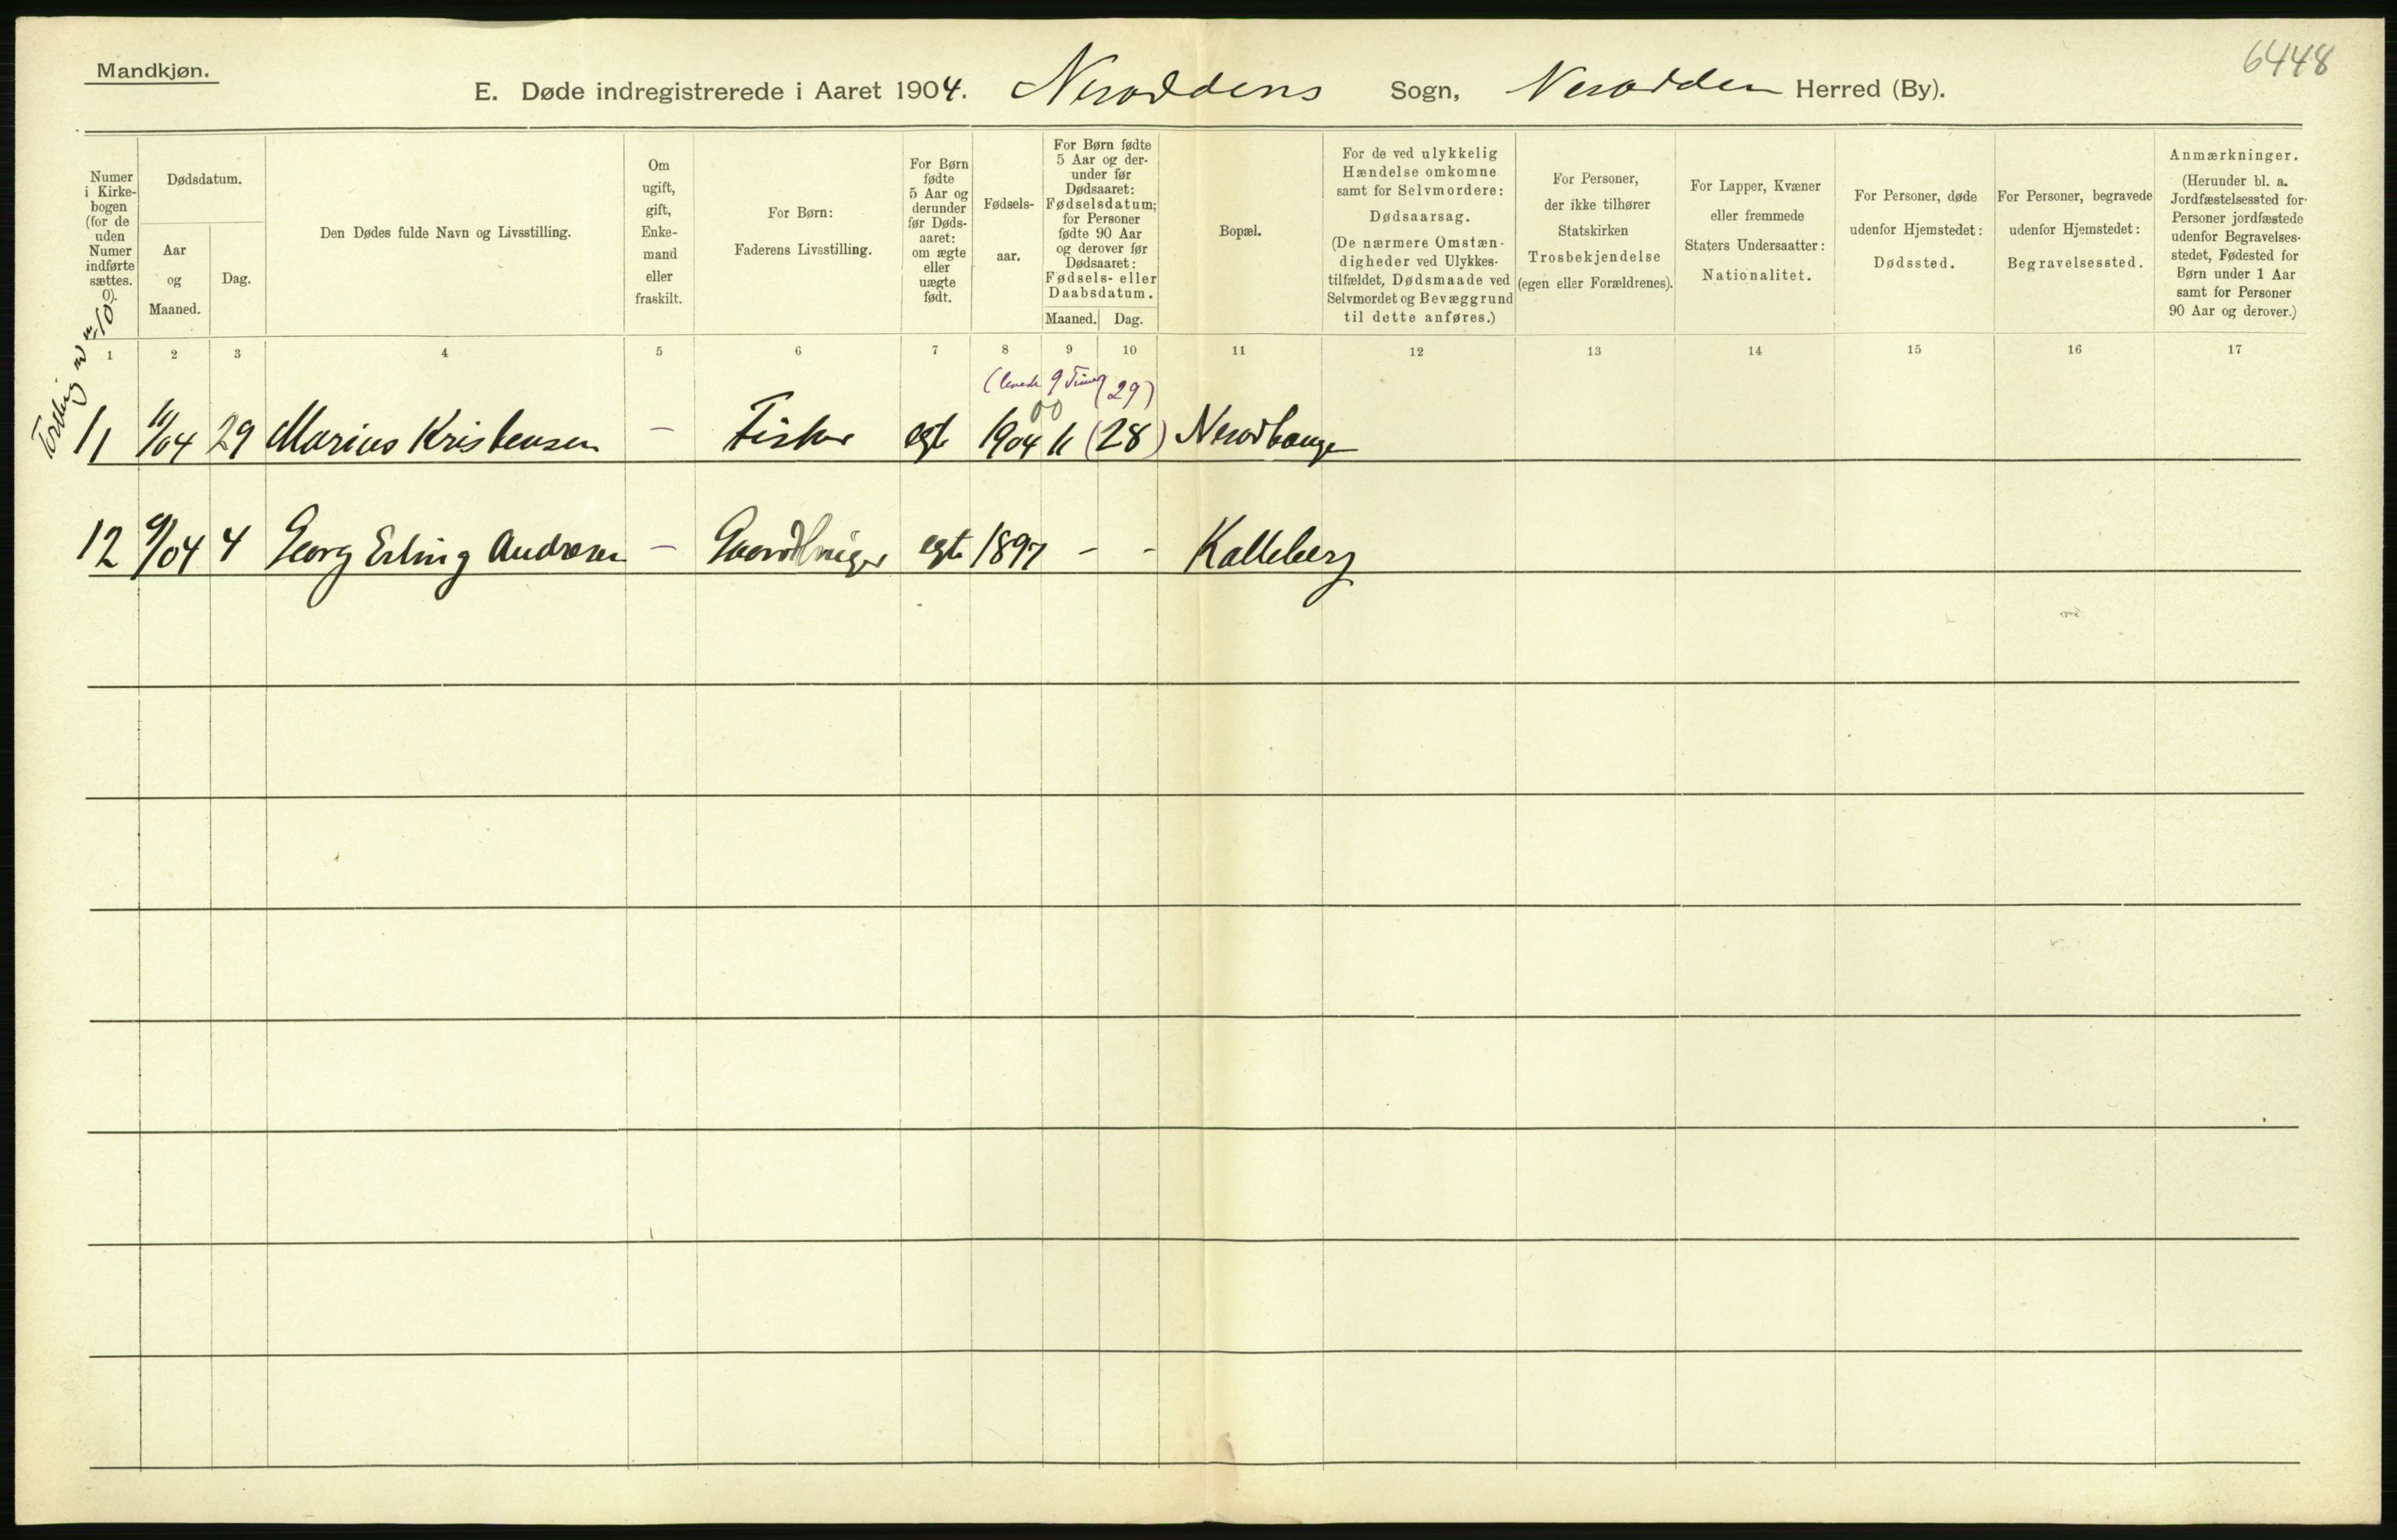 Mandkjøn.
6448
E. Døde indregistrerede i Aaret 1904. Nesoddens Sogn, Nesodden Herred (By).
Numer i Kirke-bogen (for de uden Numer indførte sættes. 0).
Dødsdatum.
Aar og Maaned.
Dag.
Den Dødes fulde Navn og Livsstilling.
Om ugift, gift, Enke-mand eller fraskilt.
For Børn: Faderens Livsstilling.
For Børn fødte 5 Aar og derunder før Døds-aaret: om ægte eller uægte født.
Fødsels-aar.
For Børn fødte 5 Aar og der-under før Dødsaaret: Fødselsdatum; for Personer fødte 90 Aar og derover før Dødsaaret: Fødsels- eller Daabsdatum.
Maaned. Dag.
Bopæl.
For de ved ulykkelig Hændelse omkomne samt for Selvmordere: Dødsaarsag. (De nærmere Omstæn-digheder ved Ulykkes-tilfældet, Dødsmaade ved Selvmordet og Bevæggrund til dette anføres.)
For Personer, der ikke tilhører Statskirken Trosbekjendelse (egen eller Forældrenes).
For Lapper, Kvæner eller fremmede Staters Undersaatter: Nationalitet.
For Personer, døde udenfor Hjemstedet: Dødssted.
For Personer, begravede udenfor Hjemstedet: Begravelsessted.
Anmærkninger. (Herunder bl. a. Jordfæstelsessted for Personer jordfæstede udenfor Begravelses-stedet, Fødested for Børn under 1 Aar samt for Personer 90 Aar og derover.)
1 2 3 4 5 6 7 8 9 10 11 12 13 14 15 16 17
(levede 9 Timer) (29)
11 11/04 29 Marius Kristensen – Fisker egte 1904 11 (28)
12 9/04 4 Georg Erling Andresen – Gaardbruger egte 1897 - - Kalleberg